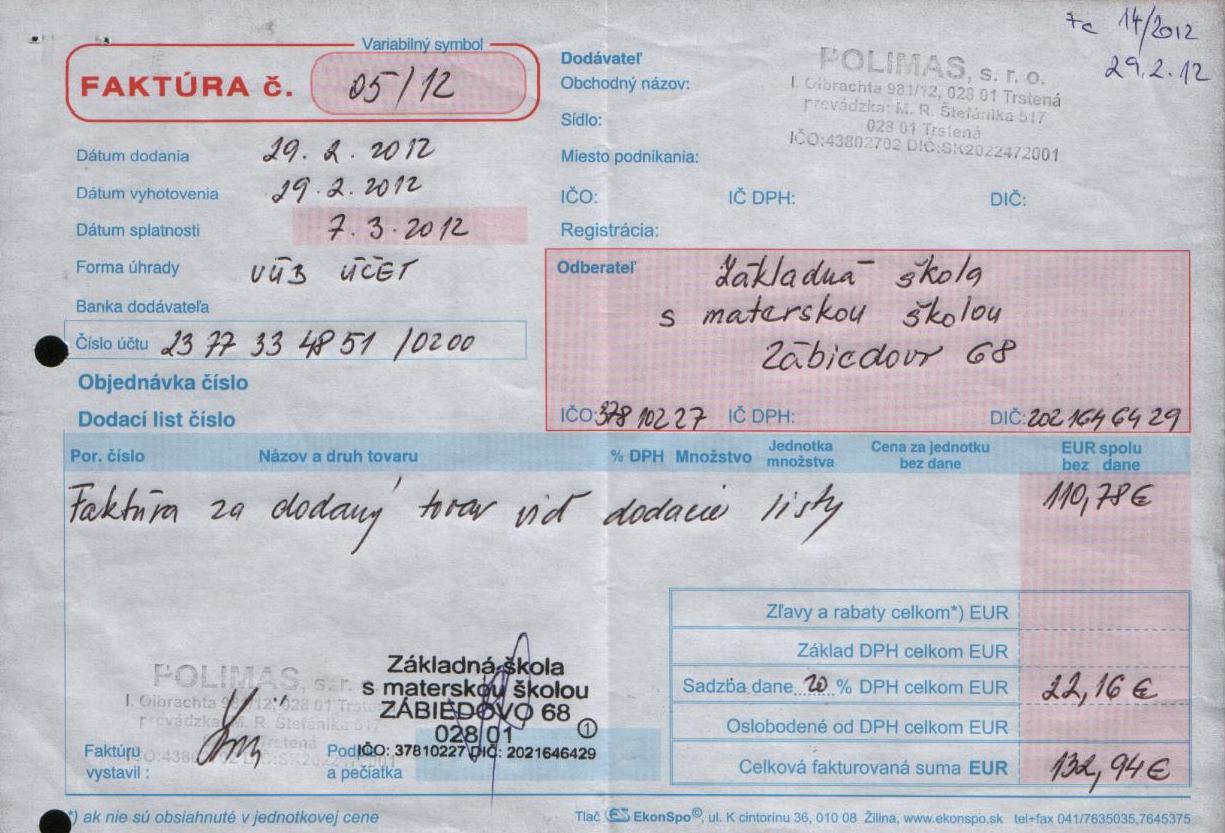 Fc 14/2012
29.2.12
Variabilný symbol
FAKTÚRA č. 05/12
Dátum dodania 29. 2. 2012
Dátum vyhotovenia 29. 2. 2012
Dátum splatnosti 7. 3. 2012
Forma úhrady VÚB ÚČET
Banka dodávateľa
Číslo účtu 23 77 33 48 51 /0200
Objednávka číslo
Dodací list číslo
Dodávateľ
Obchodný názov:
Sídlo:
Miesto podnikania:
IČO: IČ DPH: DIČ:
Registrácia:
POLIMAS, s. r. o.
I. Olbrachta 981/12, 028 01 Trstená
prevádzka: M. R. Štefánika 517
028 01 Trstená
IČO:43802702 DIČ:SK2022472001
Odberateľ Základná škola
s materskou školou
Zábiedovo 68
IČO: 378 102 27 IČ DPH: DIČ: 202 164 64 29
Por. číslo Názov a druh tovaru % DPH Množstvo Jednotka množstva Cena za jednotku bez dane EUR spolu bez dane
Faktúra za dodaný tovar viď dodacie listy 110,78 €
Zľavy a rabaty celkom*) EUR
Základ DPH celkom EUR
Sadzba dane 20 % DPH celkom EUR 22,16 €
Oslobodené od DPH celkom EUR
Celková fakturovaná suma EUR 132,94 €
POLIMAS, s. r.
I. Olbrachta 981/12, 028 01 Trst
prevádzka: M. R. Štefánika 517
Trstená
Základná škola
s materskou školou
ZÁBIEDOVO 68
028 01 1
IČO: 37810227 DIČ: 2021646429
Faktúru
vystavil :
a pečiatka
*) ak nie sú obsiahnuté v jednotkovej cene
Tlač EkonSpo©, ul. K cintorínu 36, 010 08 Žilina, www.ekonspo.sk tel+fax 041/7635035,7645375